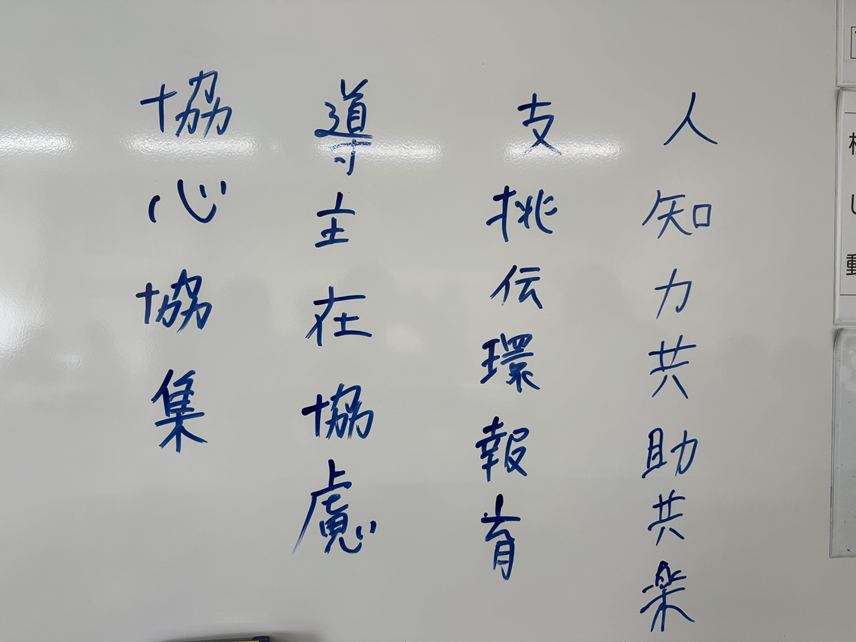 人知力共助共楽
支挑伝環報育
導主在協慮
協心協集